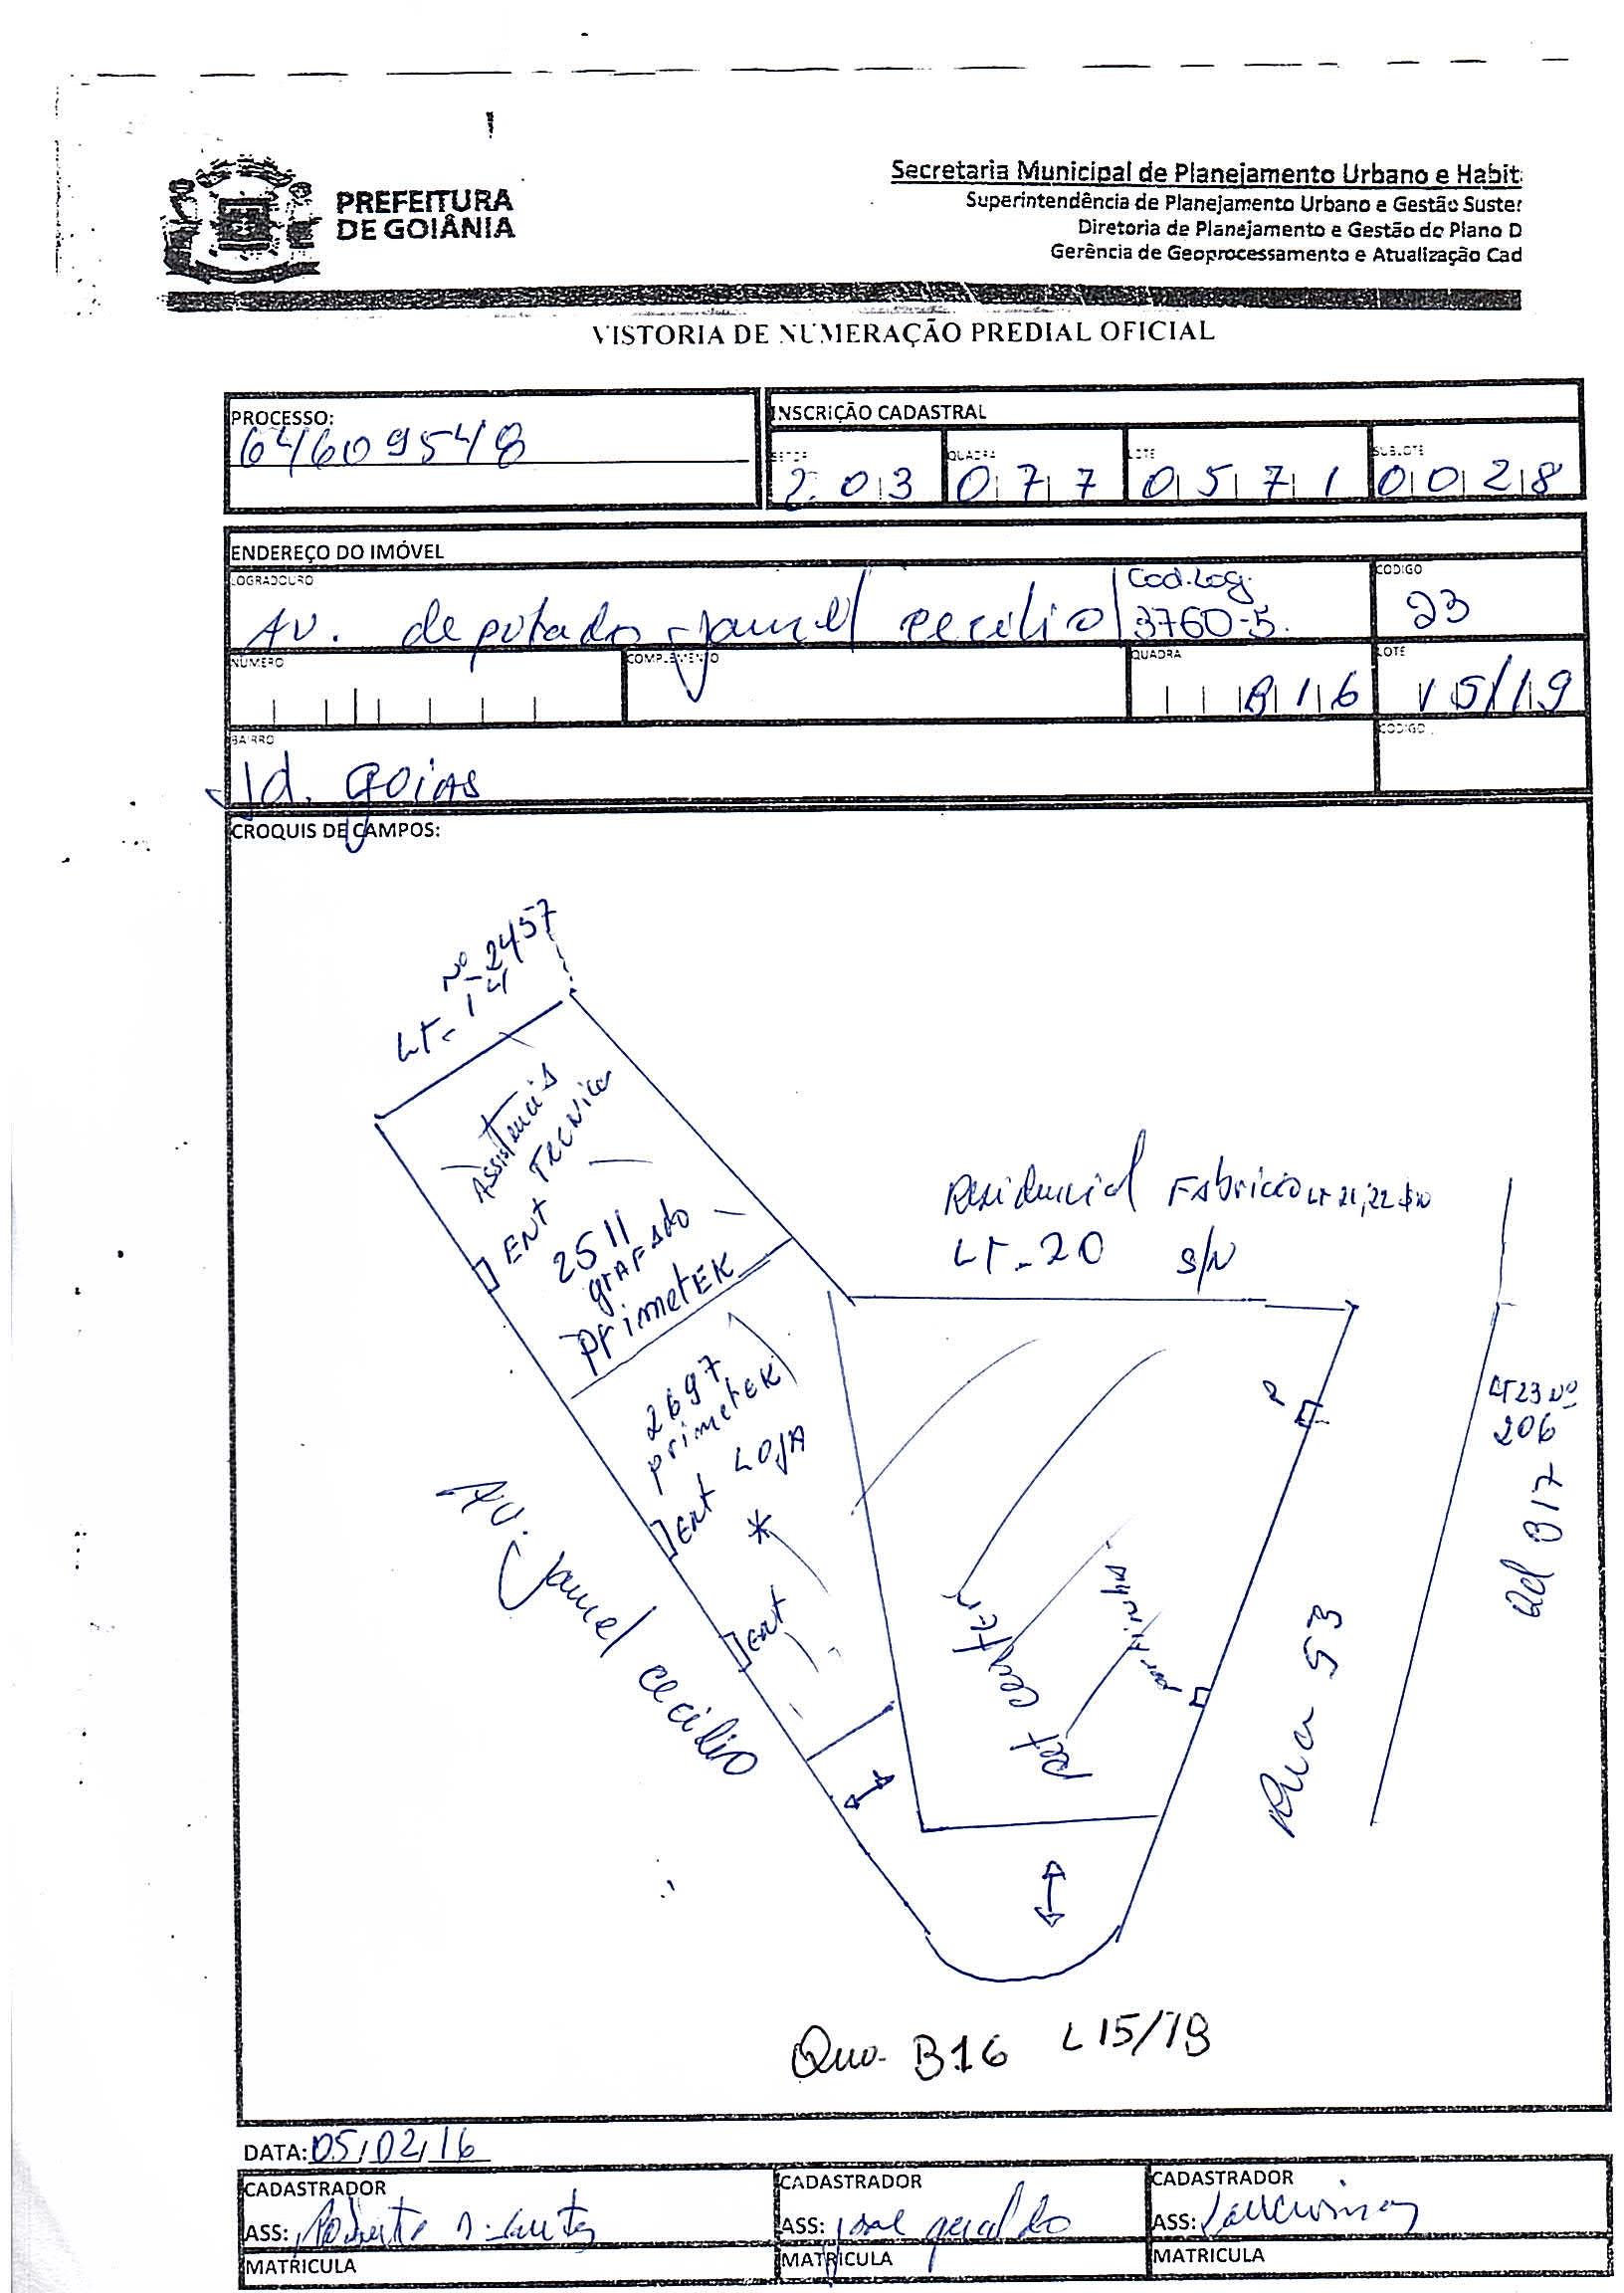 PREFEITURA
DE GOIÂNIA
Secretaria Municipal de Planejamento Urbano e Habit
Superintendência de Planejamento Urbano e Gestão Suster
Diretoria de Planejamento e Gestão do Plano D
Gerência de Geoprocessamento e Atualização Cad
VISTORIA DE NUMERAÇÃO PREDIAL OFICIAL
PROCESSO:
64609548
INSCRIÇÃO CADASTRAL
SETOR QUADRA LOTE SUBLOTE
203 077 0571 0028
ENDEREÇO DO IMÓVEL
LOGRADOURO
Cod.Log.
CODIGO
AV. deputado jamel cecilio 3760-5. 23
NUMERO COMPLEMENTO QUADRA LOTE
B16 15/19
BAIRRO
CODIGO
Jd. goiAs
CROQUIS DE CAMPOS:
Nº 2457
LT-14
Assistencia
TECNICA
ENT
2511
grAFAdo
PrimetEK
Residencial FAbricio LT 21,22
LT-20 S/N
2697
primetEK
LOJA
ENT
*
ENT
P
LT23 Nº
206
Qd B17
AV. Jamel cecilio
pet center
portinhA
Rua 53
Qua. B16 L15/19
DATA: 05/02/16
CADASTRADOR
ASS:
MATRICULA
CADASTRADOR
ASS: jose geraldo
MATRICULA
CADASTRADOR
ASS:
MATRICULA